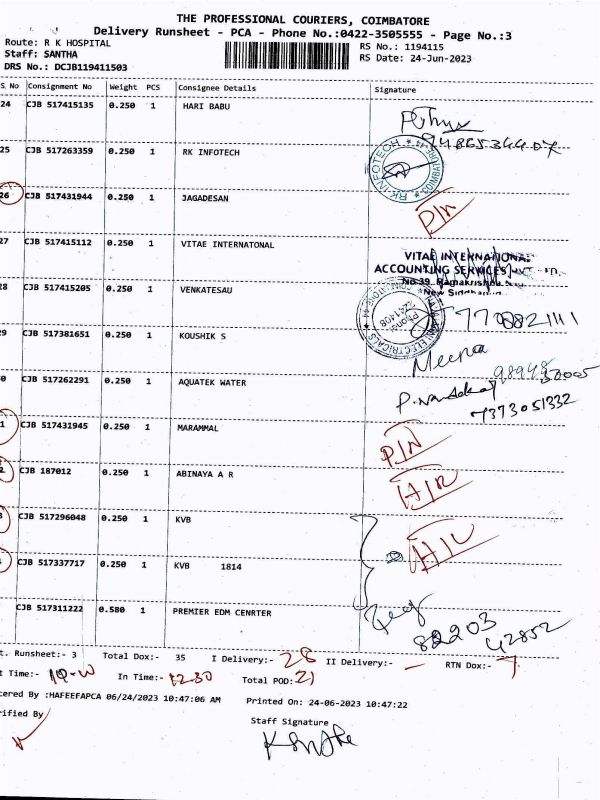 THE PROFESSIONAL COURIERS, COIMBATORE
Delivery Runsheet - PCA - Phone No.:0422-3505555 - Page No.:3
Route: R K HOSPITAL
RS No.: 1194115
Staff: SANTHA
RS Date: 24-Jun-2023
DRS No.: DCJB119411503
S No Consignment No Weight PCS Consignee Details Signature
24 CJB 517415135 0.250 1 HARI BABU
9486534407
25 CJB 517263359 0.250 1 RK INFOTECH
RK INFOTECH * COIMBATORE-44 *
26 CJB 517431944 0.250 1 JAGADESAN
P/N
27 CJB 517415112 0.250 1 VITAE INTERNATONAL
VITAE INTERNATIONAL
ACCOUNTING SERVICES
No.39, Ramakrishna
28 CJB 517415205 0.250 1 VENKATESAU
ELECTRICALS
Phone
2241408
7708821111
29 CJB 517381651 0.250 1 KOUSHIK S
Meena
0 CJB 517262291 0.250 1 AQUATEK WATER
7373051332
1 CJB 517431945 0.250 1 MARAMMAL
P/N
2 CJB 187012 0.250 1 ABINAYA A R
3 CJB 517296048 0.250 1 KVB
CJB 517337717 0.250 1 KVB 1814
CJB 517311222 0.580 1 PREMIER EDM CENRTER
82203
42852
t. Runsheet:- 3 Total Dox:- 35 I Delivery:- 28 II Delivery:- — RTN Dox:- 7
t Time:- In Time:- 12-30 Total POD: 21
tered By :HAFEEFAPCA 06/24/2023 10:47:06 AM Printed On: 24-06-2023 10:47:22
rified By
Staff Signature